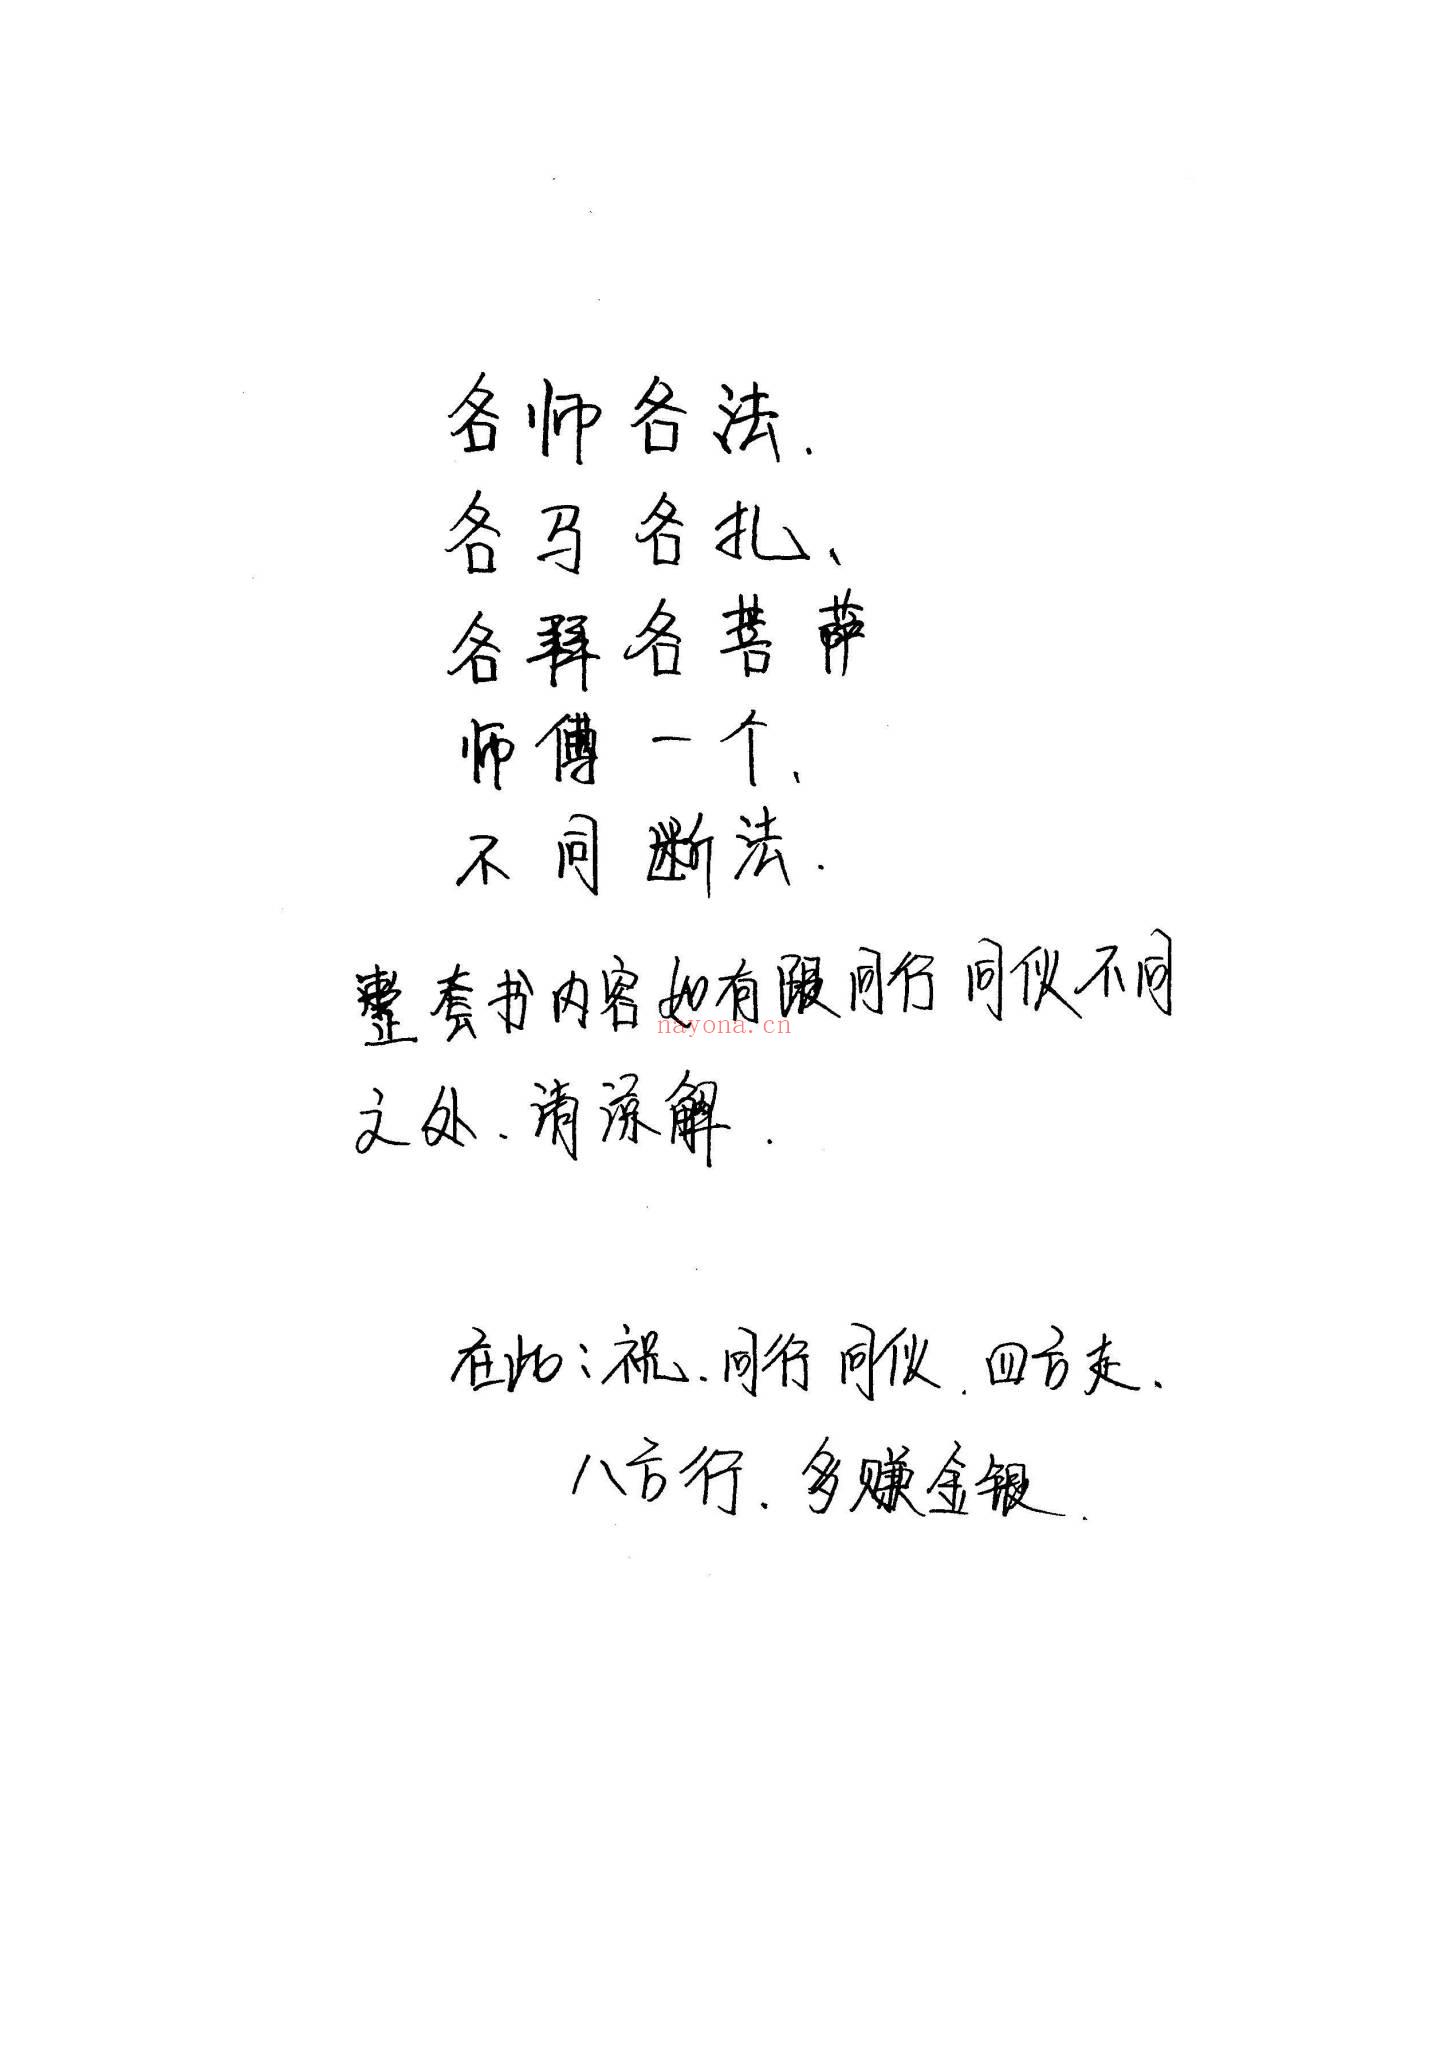 各师各法.
各马各扎、
各拜各菩萨
师傅一个、
不同断法.
整套书内容如有跟同行同仪不同
nayona.cn
之处、请谅解.
在此:祝、同行同仪.四方走、
八方行.多赚金银.